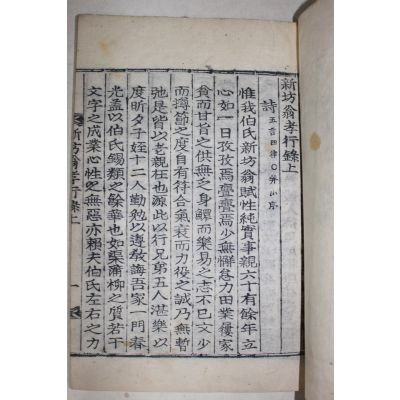 新坊翁孝行錄上
詩 五言四律○幷小序
惟我伯氏新坊翁賦性純實事親六十有餘年立
心如一日孜孜焉亹亹焉少無懈怠力田業復家
貧而甘旨之供無乏身鱞而樂易之志不已文少
而撙節之度自有待合氣衰而力役之誠乃無暫
弛是皆以老親在也源此以行兄弟五人湛樂以
度昕夕子姪十二人勤勉以遵敎誨吾家一門春
光盖以伯氏錫類之餘華也如渠蒲柳之質若干
文字之成業心性免無惡亦賴夫伯氏左右之力
新坊翁孝行錄上
一